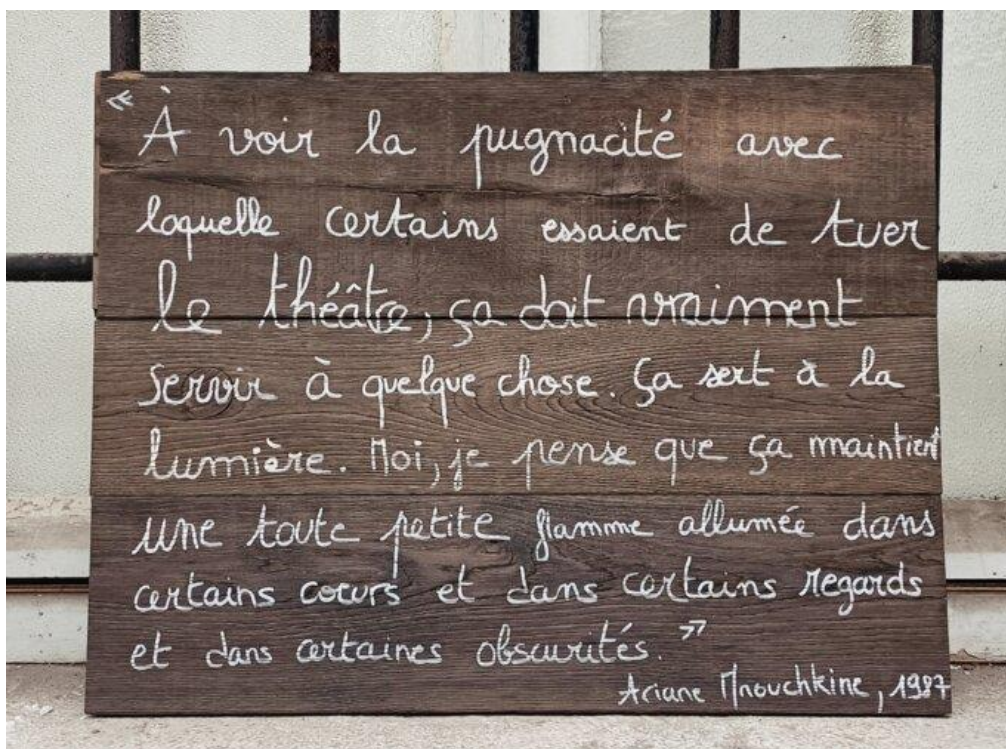 « À voir la pugnacité avec
laquelle certains essaient de tuer
le théâtre, ça doit vraiment
servir à quelque chose. Ça sert à la
lumière. Moi, je pense que ça maintient
une toute petite flamme allumée dans
certains cœurs et dans certains regards
et dans certaines obscurités. »
Ariane Mnouchkine, 1987